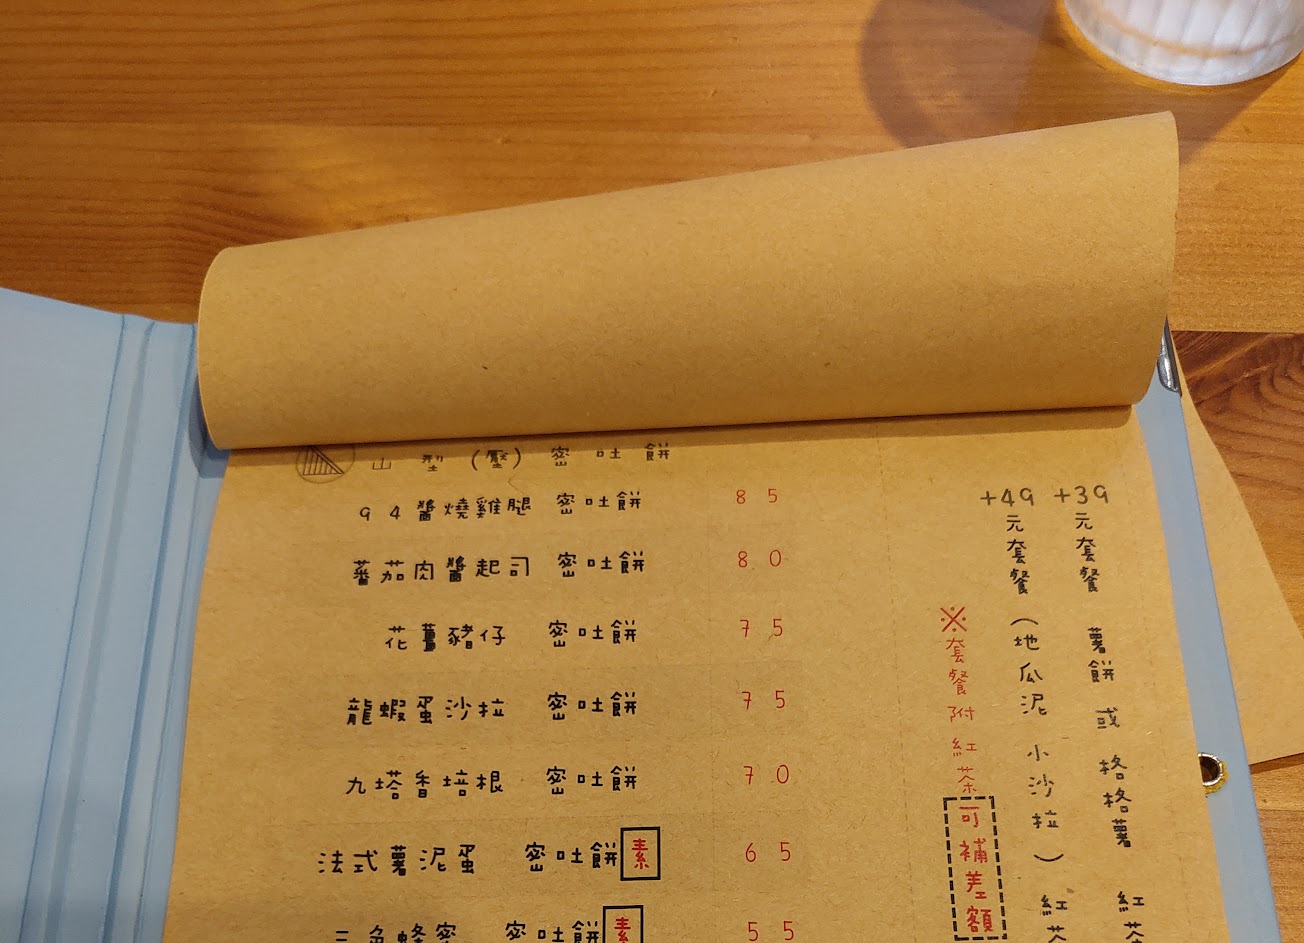 山型(壓)密吐餅
94醬燒雞腿 密吐餅 85
蕃茄肉醬起司 密吐餅 80
花薑豬仔 密吐餅 75
龍蝦蛋沙拉 密吐餅 75
九塔香培根 密吐餅 70
法式薯泥蛋 密吐餅 素 65
三色蜂蜜 密吐餅 素 55
+39元套餐 薯餅 或 格格薯 紅茶
+49元套餐(地瓜泥 小沙拉) 紅茶
※套餐附紅茶可補差額